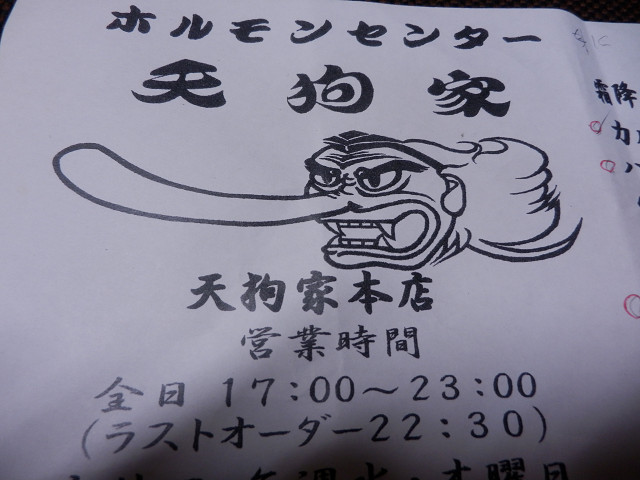 ホルモンセンター
天狗家
天拘家本店
営業時間
全日 17:00～23:00
(ラストオーダー22:30)
霜降